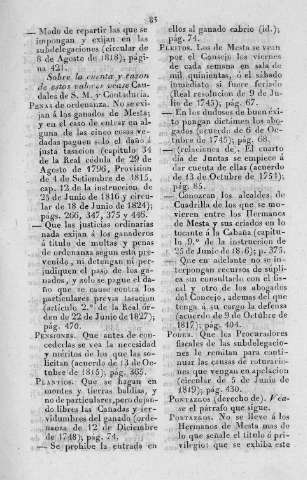 85
— Modo de repartir las que se
impongan y exijan en las
subdelegaciones (circular de
8 de Agosto de 1818), pági-
na 421.
Sobre la cuenta y razon
de estos valores veáse Cau-
dales de S. M. y Contaduría.
PENAS de ordenanza. No se exi-
jan á los ganados de Mesta;
y en el caso de entrar en al-
guna de las cinco cosas ve-
dadas paguen solo el daño á
justa tasacion (capítulo 34
de la Real cédula de 29 de
Agosto de 1796, Provision
de 4 de Setiembre de 1815,
cap. 12 de la instruccion de
25 de Junio de 1816 y circu-
lar de 18 de Junio de 1824);
págs. 266, 347, 375 y 446.
— Que las justicias ordinarias
nada exijan á los ganaderos
á título de multas y penas
de ordenanza segun está pre-
venido, ni detengan ni per-
judiquen el paso de los ga-
nados, y solo se pague el da-
ño que se cause contra los
particulares previa tasacion
(artículo 2.º de la Real ór-
den de 22 de Junio de 1827);
pág. 470.
PENSIONES. Que antes de con-
cederlas se vea la necesidad
y méritos de los que las so-
licitan (acuerdo de 13 de Oc-
tubre de 1816), pág. 365.
PLANTIOS. Que se hagan en
montes y tierras baldías, y
no de particulares, pero dejan-
do libres las Cañadas y ser-
vidumbres del ganado (orde-
nanza de 12 de Diciembre
de 1748), pág. 74.
— Se prohibe la entrada en
ellos al ganado cabrío (id.);
pág. 74.
PLEITOS. Los de Mesta se vean
por el Consejo los viernes
de cada semana en sala de
mil quinientas, ó el sábado
inmediato si fuere feriado
(Real resolucion de 9 de Ju-
lio de 1745), pág. 67.
— En los dudosos de buen éxi-
to pongan dictámen los abo-
gados (acuerdo de 6 de Oc-
tubre de 1745), pág. 68.
— (relaciones de). El cuarto
dia de Juntas se empiece á
dar cuenta de ellas (acuerdo
de 13 de Octubre de 1751);
pág. 85.
— Conozcan los alcaldes de
Cuadrilla de los que se mo-
vieren entre los Hermanos
de Mesta y sus criados en lo
tocante á la Cabaña (capítu-
lo 9.º de la instruccion de
25 de Junio de 1816); p. 375.
— Que en adelante que se in-
terpongan recursos de supli-
ca sin consultarlo con el fis-
cal y otro de los abogados
del Consejo, ademas del que
tenga á su cargo la defensa
(acuerdo de 9 de Octubre de
1817); pág. 404.
PODER. Que los Procuradores
fiscales de las subdelegacio-
nes le remitan para conti-
nuar las causas de roturacio-
nes que vengan en apelacion
(circular de 5 de Junio de
1819); pág. 430.
PONTAZGOS (derecho de). Véa-
se el párrafo que sigue.
PORTAZGOS. No se lleve á los
Hermanos de Mesta mas de
lo que señale el título ó pri-
vilegio: que se exhiba este